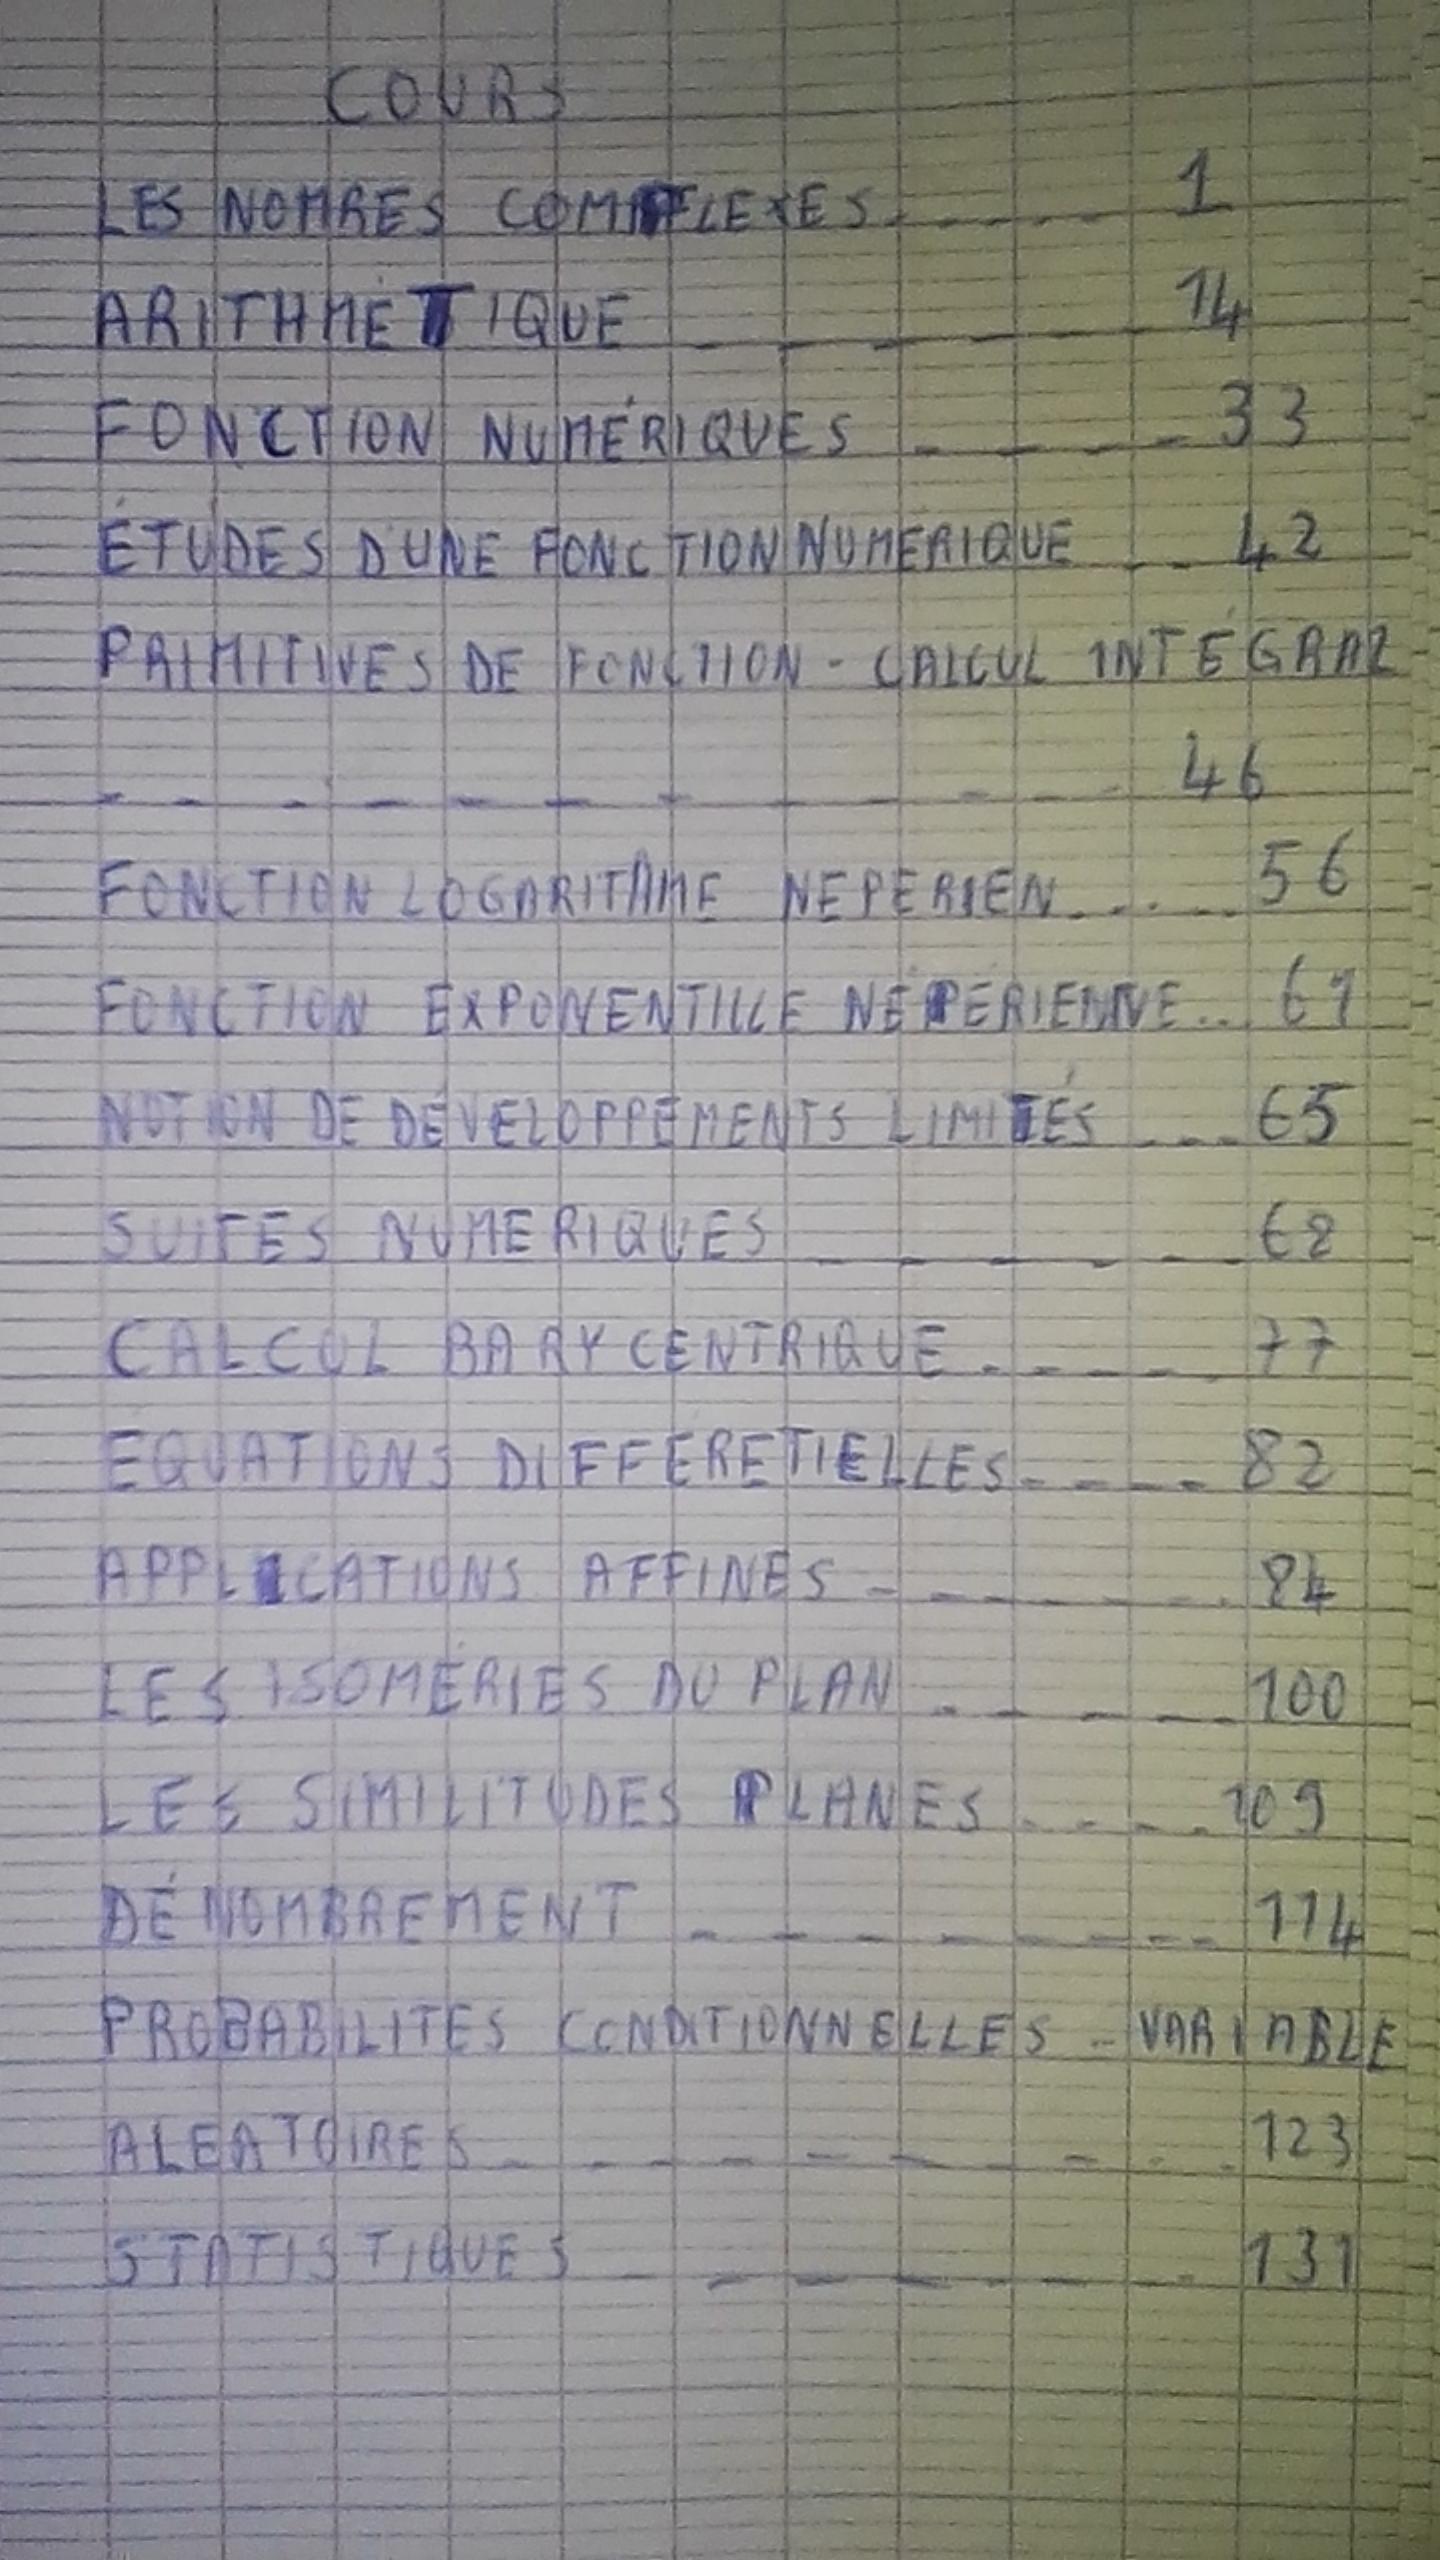 COURS
LES NOMRES COMPLEXES 1
ARITHMÉTIQUE 14
FONCTION NUMÉRIQUES 33
ÉTUDES D'UNE FONCTION NUMÉRIQUE 42
PRIMITIVES DE FONCTION - CALCUL INTÉGRAL
46
FONCTION LOGARITHME NEPERIEN 56
FONCTION EXPONENTILLE NÉPÉRIENNE 61
NOTION DE DÉVELOPPEMENTS LIMITÉS 65
SUITES NUMERIQUES 68
CALCUL BARYCENTRIQUE 77
EQUATIONS DIFFERETIELLES 82
APPLICATIONS AFFINES 84
LES ISOMÉRIES DU PLAN 100
LES SIMILITUDES PLANES 109
DÉNOMBREMENT 114
PROBABILITES CONDITIONNELLES - VARIABLE
ALEATOIRES 123
STATISTIQUES 131